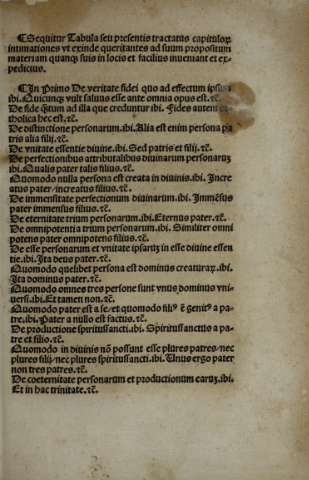 ¶Sequitur Tabula seu presentis tractatus capitulorꝝ
intimationes vt exinde queritantes ad suum propositum
materiam quamcꝫ suis in locis et facilius inueniant et ex-
pedicius.
¶In Primo De veritate fidei quo ad effectum ipsius
ibi. Quicunqꝫ vult saluus esse ante omnia opus est. ⁊c̄.
De fide q̃ntum ad illa que creduntur ibi. Fides autem ca
tholica hec est. ⁊c̄.
De distinctione personarum. ibi. Alia est enim persona pa
tris alia filij. ⁊c̄.
De vnitate essentie diuine. ibi. Sed patris et filij. ⁊c̄.
De perfectionibus attributalibus diuinarum personarꝝ
ibi. Qualis pater talis filius. ⁊c̄.
Quomodo nulla persona est creata in diuinis. ibi. Incre
atus pater increatus filius. ⁊c̄.
De immensitate perfectionum diuinarum. ibi. Immẽsus
pater immensus filius. ⁊c̄.
De eternitate trium personarum. ibi. Eternus pater. ⁊c̄.
De omnipotentia trium personarum. ibi. Similiter omni
potens pater omnipotens filius. ⁊c̄.
De esse personarum et vnitate ipsarꝝ in esse diuine essen
tie. ibi. Ita deus pater. ⁊c̄.
Quomodo quelibet persona est dominus creaturaꝝ. ibi.
Ita dominus pater. ⁊c̄.
Quomodo omnes tres persone sunt vnus dominus vni-
uersi. ibi. Et tamen non. ⁊c̄.
Quomodo pater est a se/ et quomodo filiꝰ ẽ genitꝰ a pa-
tre. ibi. Pater a nullo est factus. ⁊c̄.
De productione spiritussancti. ibi. Spiritussanctus a pa-
tre et filio. ⁊c̄.
Quomodo in diuinis nõ possunt esse plures patres/ nec
plures filij/ nec plures spiritussancti. ibi. Unus ergo pater
non tres patres. ⁊c̄.
De coeternitate personarum et productionum earuꝫ. ibi.
Et in hac trinitate. ⁊c̄.